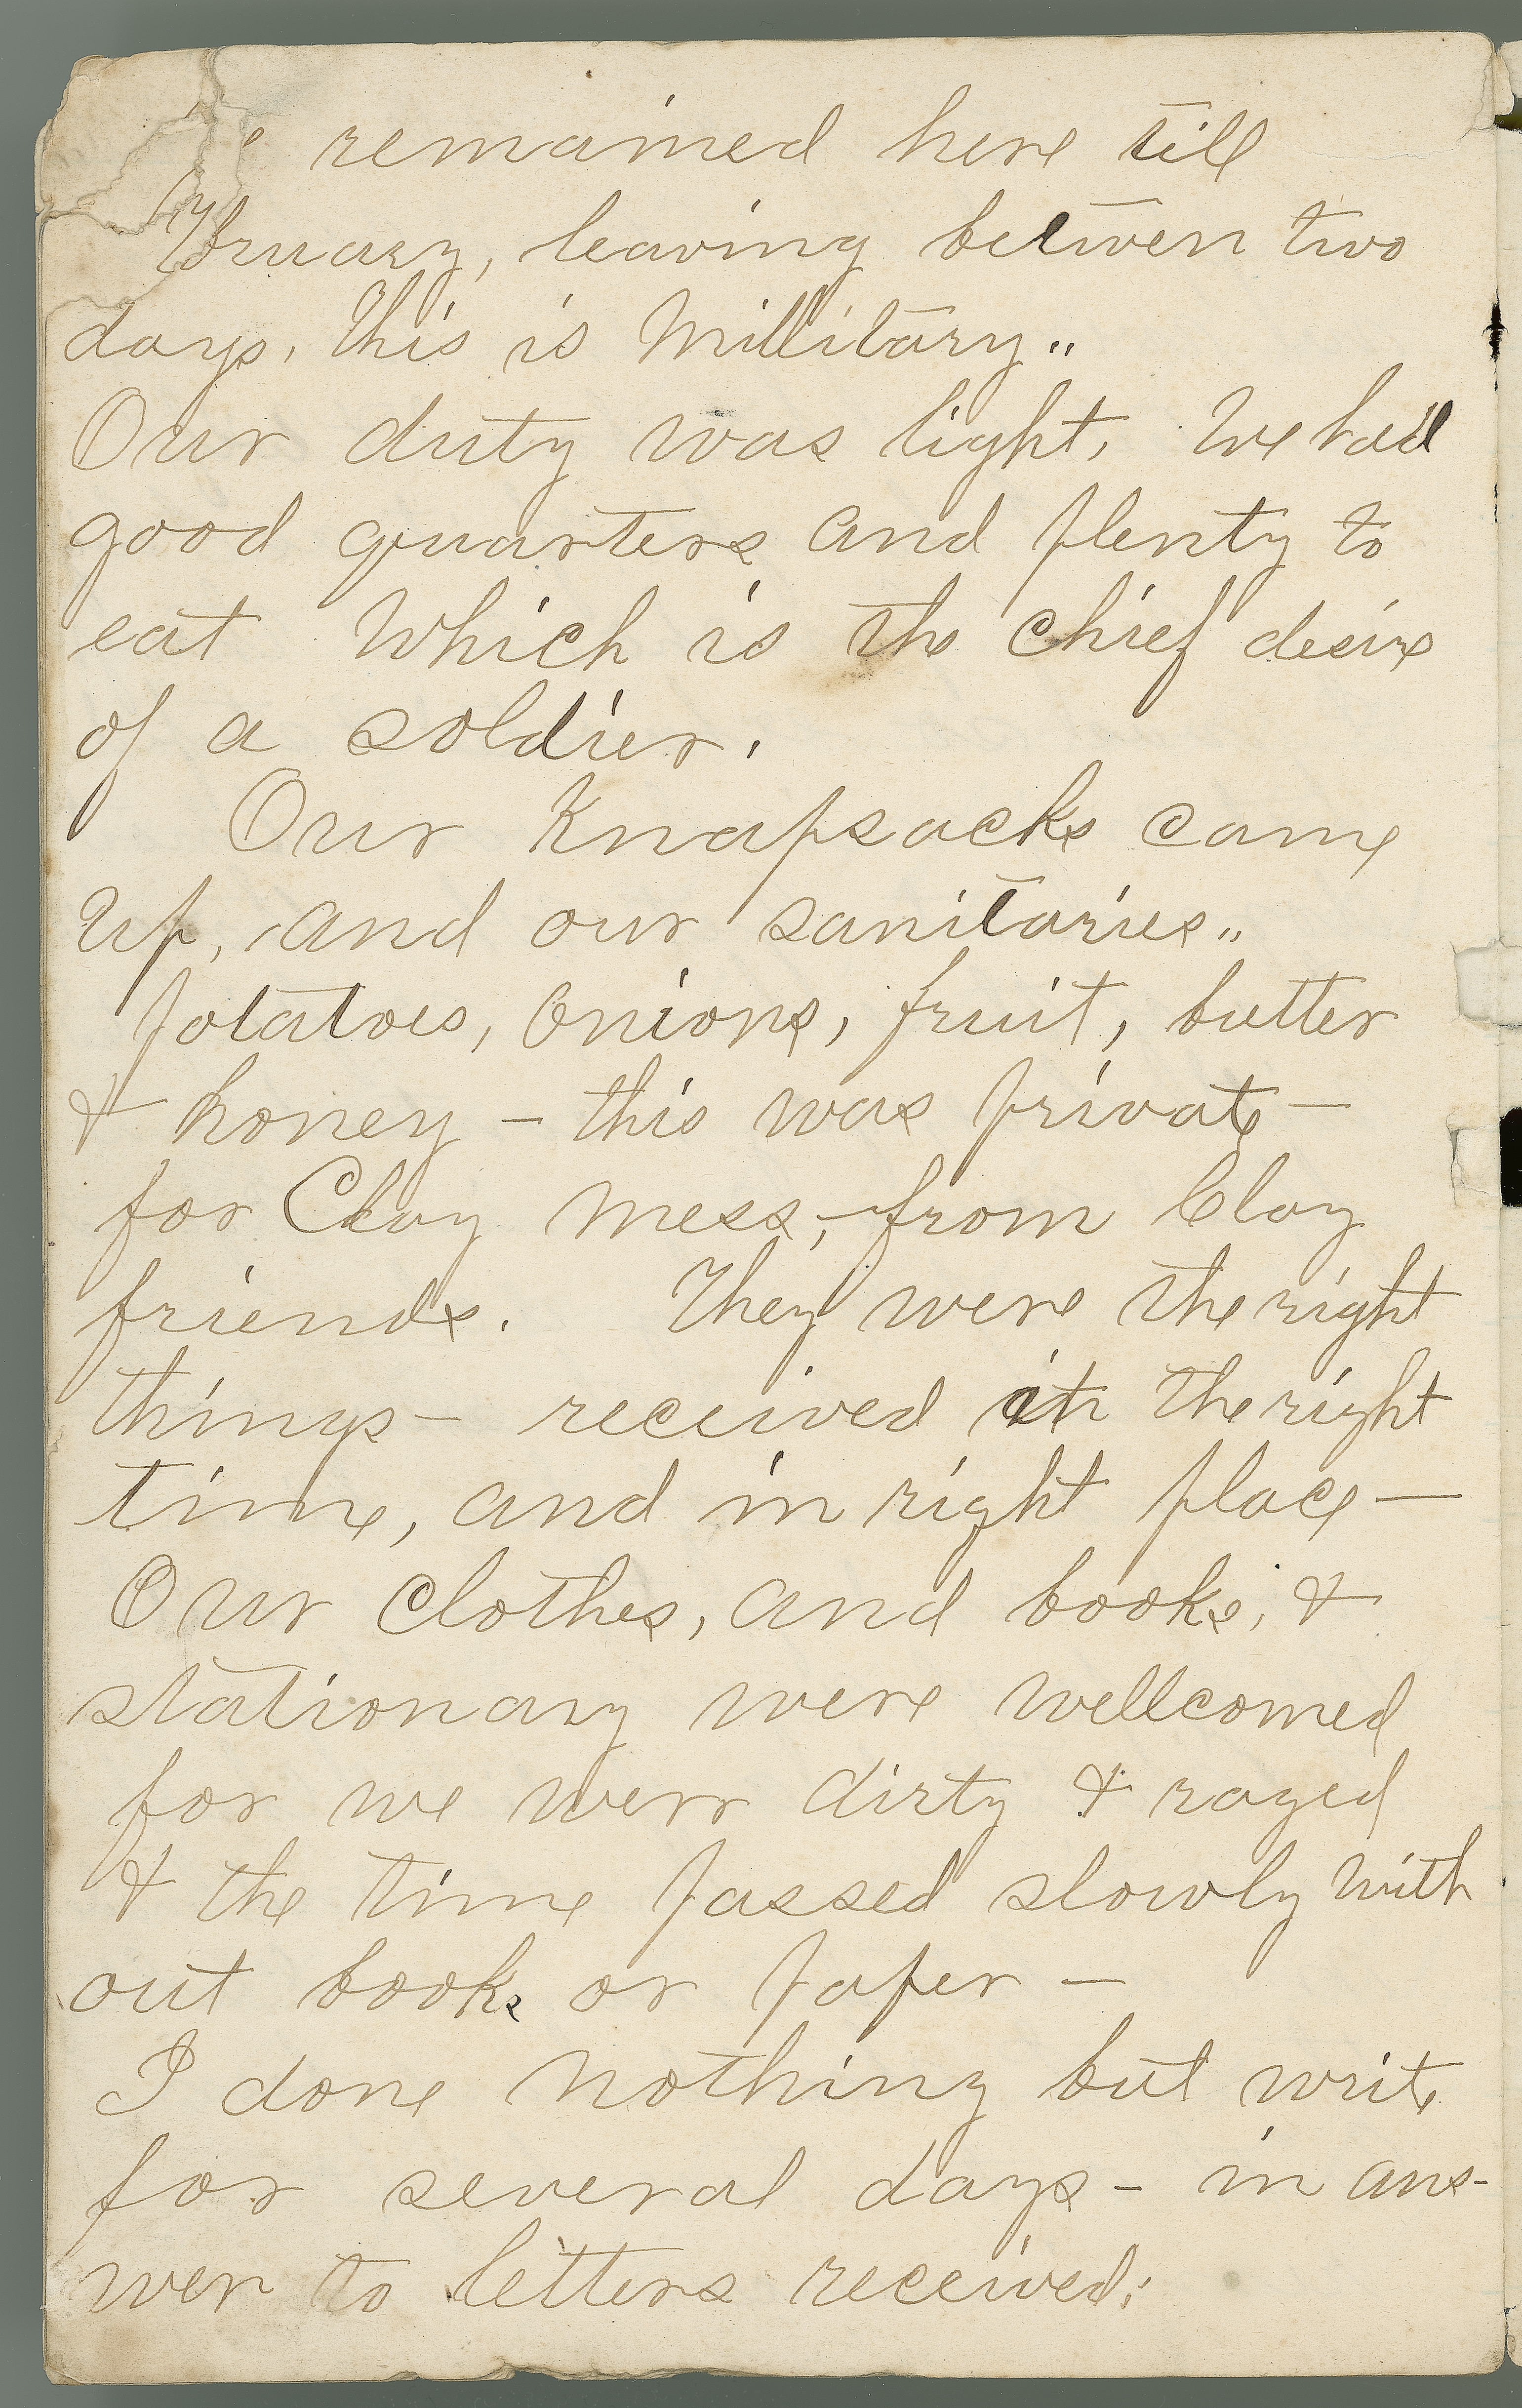 e remained here till
bruary, leaving between two
days. This is Millitary..
Our duty was light. We had
good quarters and plenty to
eat Which is the chief desire
of a soldier.
Our Knapsacks came
up, and our sanitaries..
potatoes, onions, fruit, butter
& honey – this was private –
for Clay mess, – from Clay
friends. They were the right
things – received in the right
time, and in right place –
Our clothes, and books, &
stationary were wellcomed
for we were dirty & raged
& the time passed slowly with
out books or paper –
I done nothing but write
for several days – in ans-
wer to letters received.